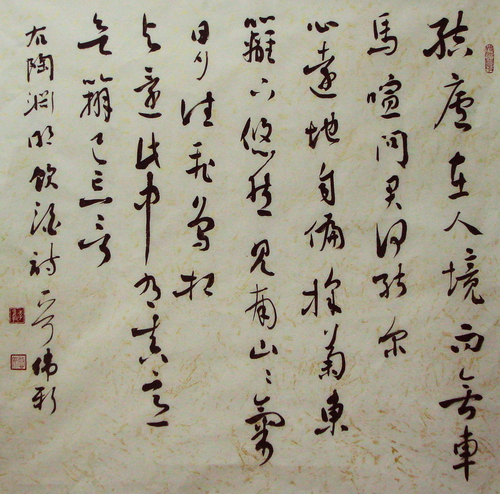 結廬在人境而無車
馬喧問君何能尔
心遠地自偏採菊東
籬下悠然見南山々氣
日夕佳飛鳥相
与還此中有真意
欲辨已忘言
右陶渊明飲酒詩一首偉新